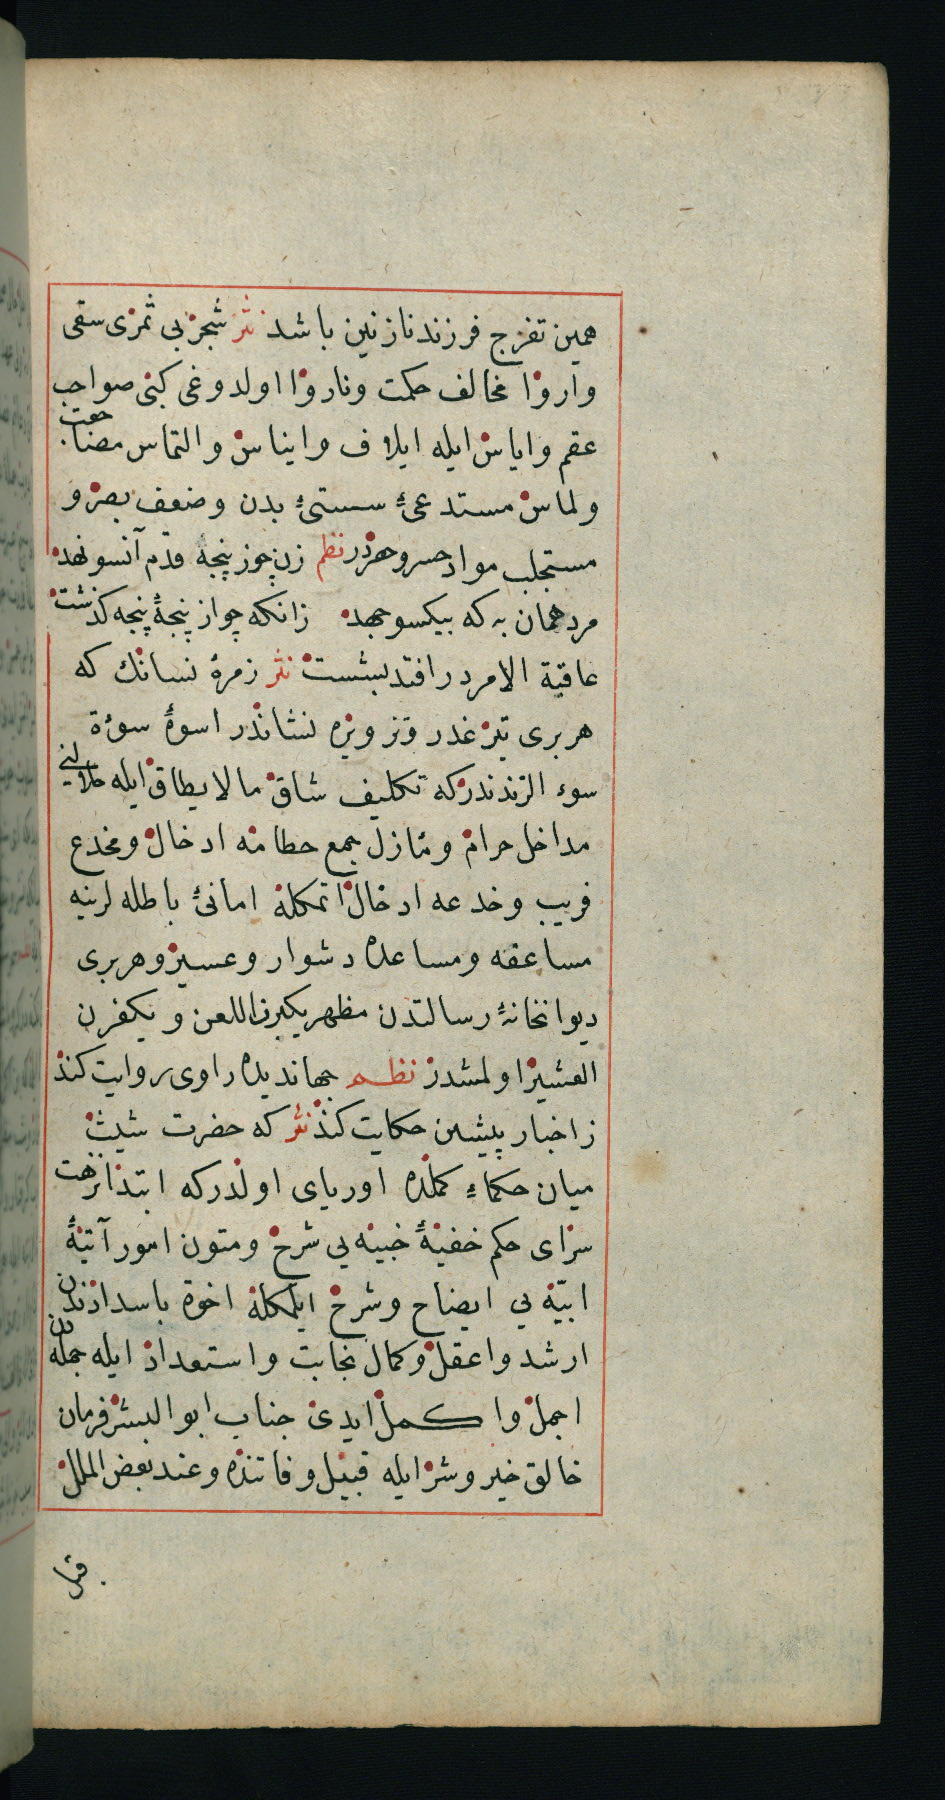 همین تفرج فرزند نازنین باشد نثر شجر بی ثمری سقی
واروا مخالف حکمت وناروا اولدوغی کبی صواحب
عقم وایاس ایله ایلاف وایناس والتماس مضاجعت
ولماس مستدعیٔ سستیٔ بدن وضعف بصر و
مستجلب مواد حسر وحزدر نظم زن چوز پنجه قدم آنسو نهد
مرد همان به که بیکسو جهد زانکه چو از پنجهٔ پنجه کذشت
عاقبة الامر در افتد بشست نثر زمرهٔ نسانك که
هر بری تیر غدر وتزویره نشاندر اسوهٔ سوره
سوء الزندندر که تکلیف شاق ما لا یطاق ایله حلائلنی
مداخل حرام ومنازل جمع حطامه ادخال ومخدع
فریب وخدعه ادخال اتمکله امانیٔ باطله لرینه
مساعفه ومساعده دشوار وعسیر وهر بری
دیوانخانهٔ رسالتدن مظهر یکثرن اللعن ویکفرن
العشیر اولمشدر نظم جهاندیده راوی روایت کند
ز اخبار پیشین حکایت کند نثر که حضرت شیث
میان حکماء کملده اوریای اولدر که ابتدا نزهت
سرای حکم خفیهٔ خبیه یی شرح ومتون امور آتیهٔ
ابیّه یی ایضاح وشرح ایلمکله اخوة باسدادندن
ارشد واعقل وکمال نجابت واستعداد ایله جمله دن
اجمل واکمل ایدی جناب ابو البشر فرمان
خالق خیر وشر ایله قبیل وفاتنده وعند بعض الملل